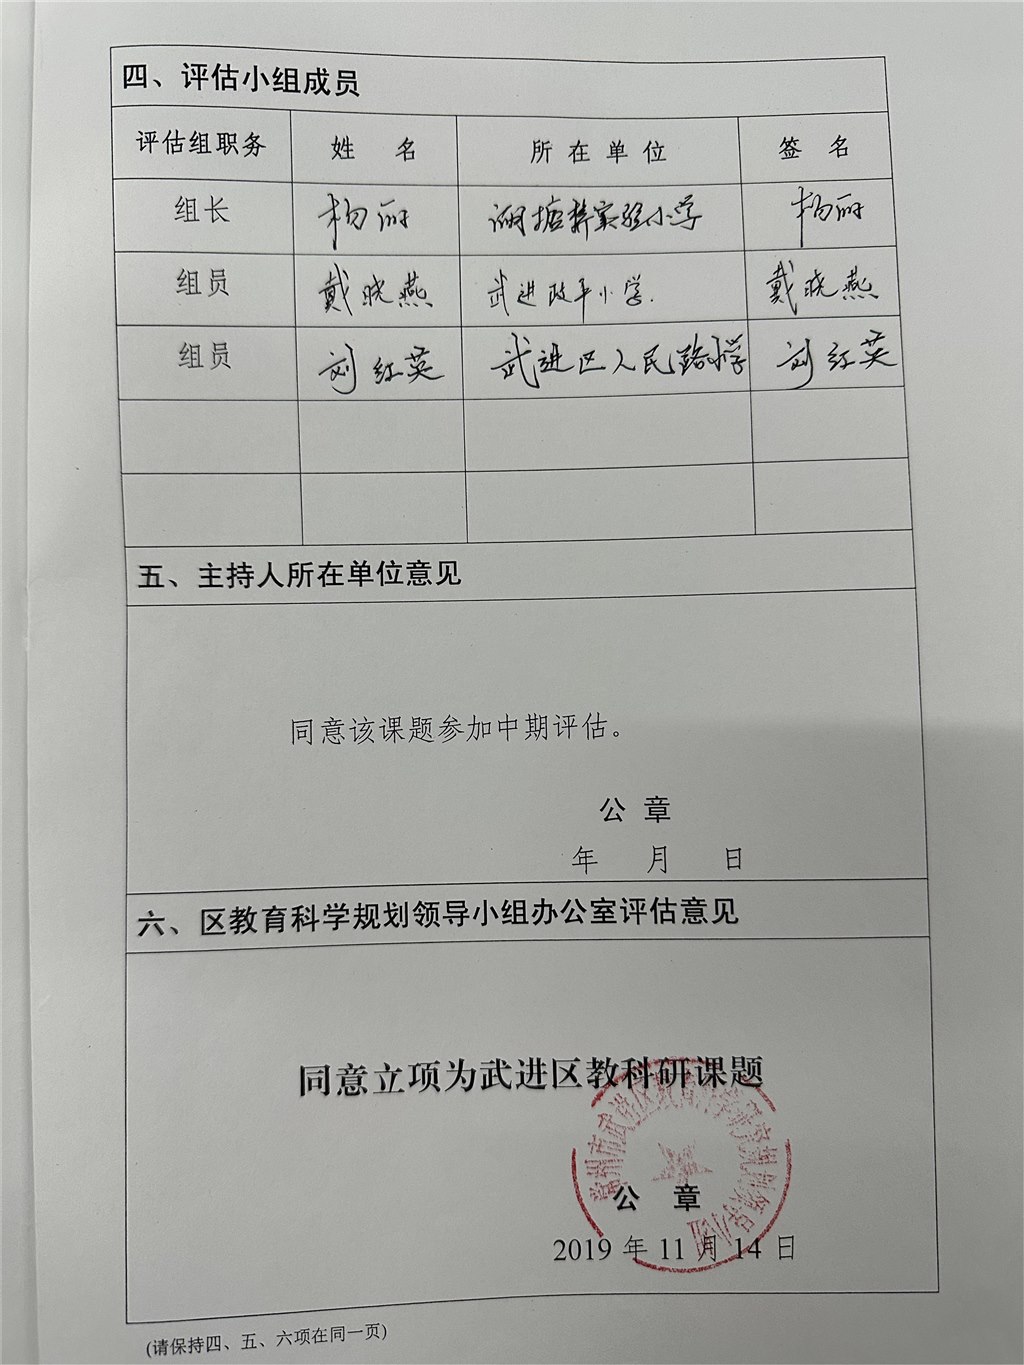 四、评估小组成员
评估组职务 姓 名 所 在 单 位 签 名
组长 杨丽 湖塘桥实验小学 杨丽
组员 戴晓燕 武进政平小学. 戴晓燕
组员 刘红英 武进区人民路小学 刘红英
五、主持人所在单位意见
同意该课题参加中期评估。
公 章
年 月 日
六、区教育科学规划领导小组办公室评估意见
同意立项为武进区教科研课题
常州市武进区教育科学研究规划领导小组
公 章
2019 年 11 月 14 日
(请保持四、五、六项在同一页)